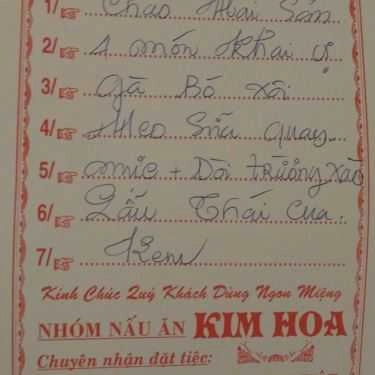 1/ Chao Hải Sản
2/ 1 món khai vị
3/ Gà Bó Xôi
4/ Heo Sữa quay
5/ mực + Dồi trường xào
6/ Lẩu Thái Cua.
7/ Kem
Kính Chúc Quý Khách Dùng Ngon Miệng
NHÓM NẤU ĂN KIM HOA
Chuyên nhận đặt tiệc: